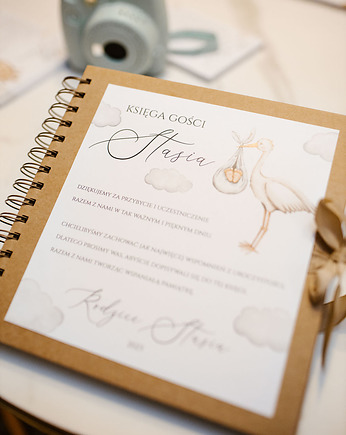 KSIĘGA GOŚCI
Stasia
DZIĘKUJEMY ZA PRZYBYCIE I UCZESTNICZENIE
RAZEM Z NAMI W TAK WAŻNYM I PIĘKNYM DNIU.
CHCIELIBYŚMY ZACHOWAĆ JAK NAJWIĘCEJ WSPOMNIEŃ Z UROCZYSTOŚCI,
DLATEGO PROSIMY WAS, ABYŚCIE DOPISYWALI SIĘ DO TEJ KSIĘGI,
RAZEM Z NAMI TWORZĄC WSPANIAŁĄ PAMIĄTKĘ.
Rodzice Stasia
2023